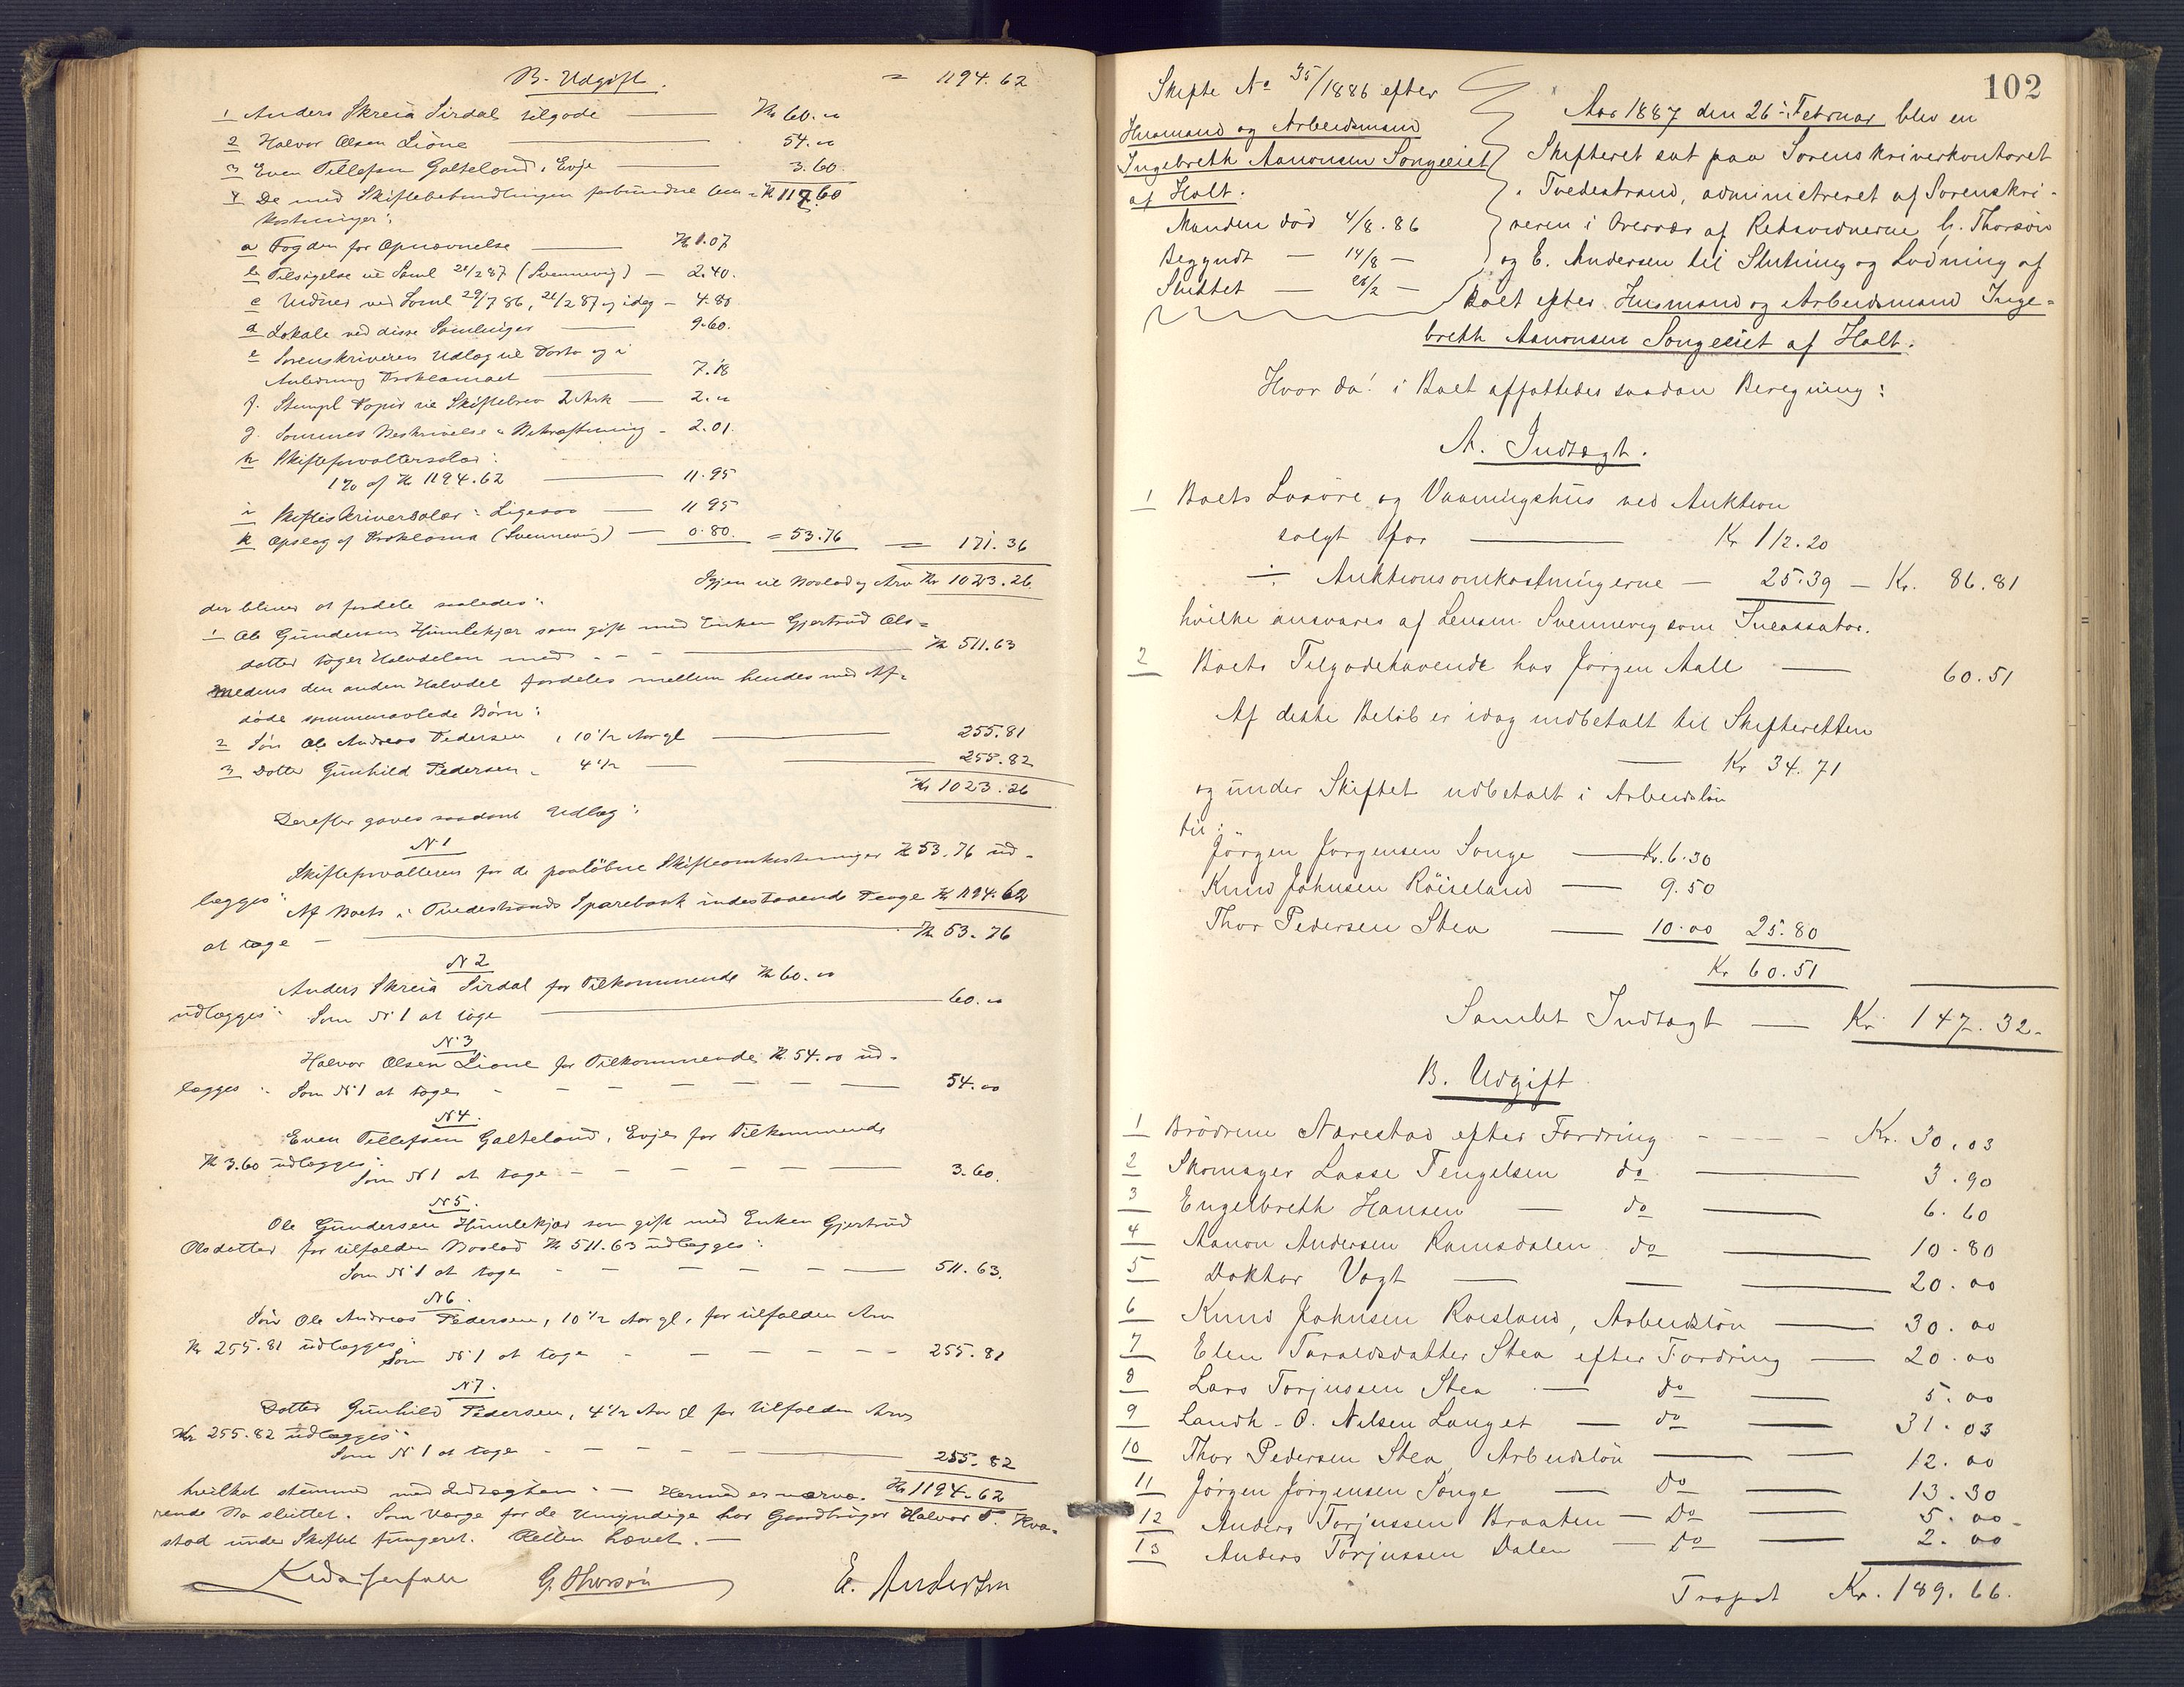 B. Udgift. = 1194.62
1 Anders Skreia Sirdal tilgode — Kr 60.00
2 Halvor Olsen Lione — 54.00
3 Even Tellefsen Galteland, Evje — 3.60
4 De med Skiftebehandlingen forbundne Om- = Kr 117.60
kostninger:
a Fogden for Opnævnelse — Kr 1.07
b Tilsigelse til Saml 21/2 87 (Svennevig) — 2.40.
c Vidner ved Saml 29/7 86, 21/2 87 og idag — 4.80
d Lokale ved disse Samlinger — 9.60.
e Sorenskriverens Udlæg til Porto og i
Anledning Proklamaet — 7.18
f. Stempl Papir til Skiftebrev 2 Ark — 2.00
g. Sammes Beskrivelse & Bekræftning - 2.01.
h Skifteforvaltersalær:
1% af Kr 1194.62 — 11.95
i Skifteskriversalær: Ligesaa — 11 95
k Opslag af Proklama (Svennevig) — 0.80. = 53.76 = 171.36
Igjen til Boslod og Arv Kr 1023.26.
der bliver at fordele saaledes:
1 Ole Gundersen Humlekjær som gift med Enken Gjertrud Ols=
datter tager Halvdelen med - - — Kr 511.63
medens den anden Halvdel fordeles mellem hendes med Af=
døde sammenavlede Børn:
2 Søn Ole Andreas Pedersen, 10 1/2 Aar gl — 255.81
3 Datter Gunhild Pedersen, 4 1/2 — 255.82
Kr 1023.26
Derefter gaves saadant Udlæg:
N 1
Skifteforvalteren for de paaløbne Skifteomkostninger Kr 53.76 ud-
lægges:
Af Boets i Tvedestrands Sparebank indestaaende Penge Kr 1194.62
at tage — Kr 53.76
N 2
Anders Skreia Sirdal for Tilkommende Kr 60.00
udlægges: Som N 1 at tage — 60.00
N 3
Halvor Olsen Lione for Tilkommende Kr 54.00 ud-
lægges: Som N 1 at tage - - - — 54.00
N 4.
Even Tellefsen Galteland, Evje, for Tilkommende
Kr 3.60 udlægges:
Som N 1 at tage - - - — 3.60.
N 5.
Ole Gundersen Humlekjær som gift med Enken Gjertrud
Olsdatter for tilfalden Boslod Kr 511.63 udlægges:
Som N 1 at tage - - - — 511.63.
N 6.
Søn Ole Andreas Pedersen, 10 1/2 Aar gl, for tilfalden Arv
Kr 255.81 udlægges:
Som N 1 at tage - - - — 255.81
N 7.
Datter Gunhild Pedersen, 4 1/2 Aar gl for tilfalden Arv
Kr 255.82 udlægges:
Som N 1 at tage - - - — 255.82
hvilket stemmer med Indtægten. — Hermed er nærvæ- Kr 1194.62
rende Bo sluttet. Som Værge for de Umyndige har Gaardbruger Halvor T. Kva-
stad under Skiftet fungeret. Retten hævet. —
G. Thorsøn E. Andersen
102
Skifte No 35/1886 efter
Husmand og Arbeidsmand
Ingebreth Aanonsen Songeeiet
af Holt.
Manden død 4/8. 86
Begyndt — 14/8 —
Sluttet — 26/2 —
Aar 1887 den 26de Februar blev en
Skifteret sat paa Sorenskriverkontoret
i Tvedestrand, administreret af Sorenskri-
veren i Overvær af Retsvidnerne G. Thorsøn
og E. Andersen til Slutning og Lodning af
Boet efter Husmand og Arbeidsmand Inge=
breth Aanonsen Songeeiet af Holt.
Hvor da! i Boet affattedes saadan Beregning:
A. Indtægt.
1 Boets Løsøre og Vaaningshus ved Auktion
solgt for — Kr 112.20
÷ Auktionsomkostningerne — 25.39 — Kr. 86.81
hvilke ansvares af Lensm. Svennevig som Incassator.
2 Boets Tilgodehavende hos Jørgen Aall — 60.51
Af dette Beløb er idag indbetalt til Skifteretten
— Kr 34.71
og under Skiftet udbetalt i Arbeidsløn
til:
Jørgen Jørgensen Songe — Kr. 6.30
Knud Johnsen Röiseland — 9.50
Thor Pedersen Stea — 10.00 25.80
Kr 60.51
Samlet Indtægt — Kr 147.32.
B. Udgift.
1 Brødrene Narestad efter Fordring - - - - Kr. 30.03
2 Skomager Lasse Tengelsen do — 3.90
3 Engelbreth Hansen — do — 6.60
4 Aanon Andersen Ramsdalen do — 10.80
5 Doktor Vogt — — — 20.00
6 Knud Johnsen Roisland, Arbeidsløn — 30.00
7 Elen Taraldsdatter Stea efter Fordring — 20.00
8 Lars Torjussen Stea — do — 5.00
9 Landh. O. Nilsen Langet — do — 31.03
10 Thor Pedersen Stea, Arbeidsløn — 12.00
11 Jørgen Jørgensen Songe — Do — 13.30
12 Anders Torjussen Braaten — Do — 5.00
13 Anders Torjussen Dalen — Do — 2.00
Trspt Kr. 189.66.